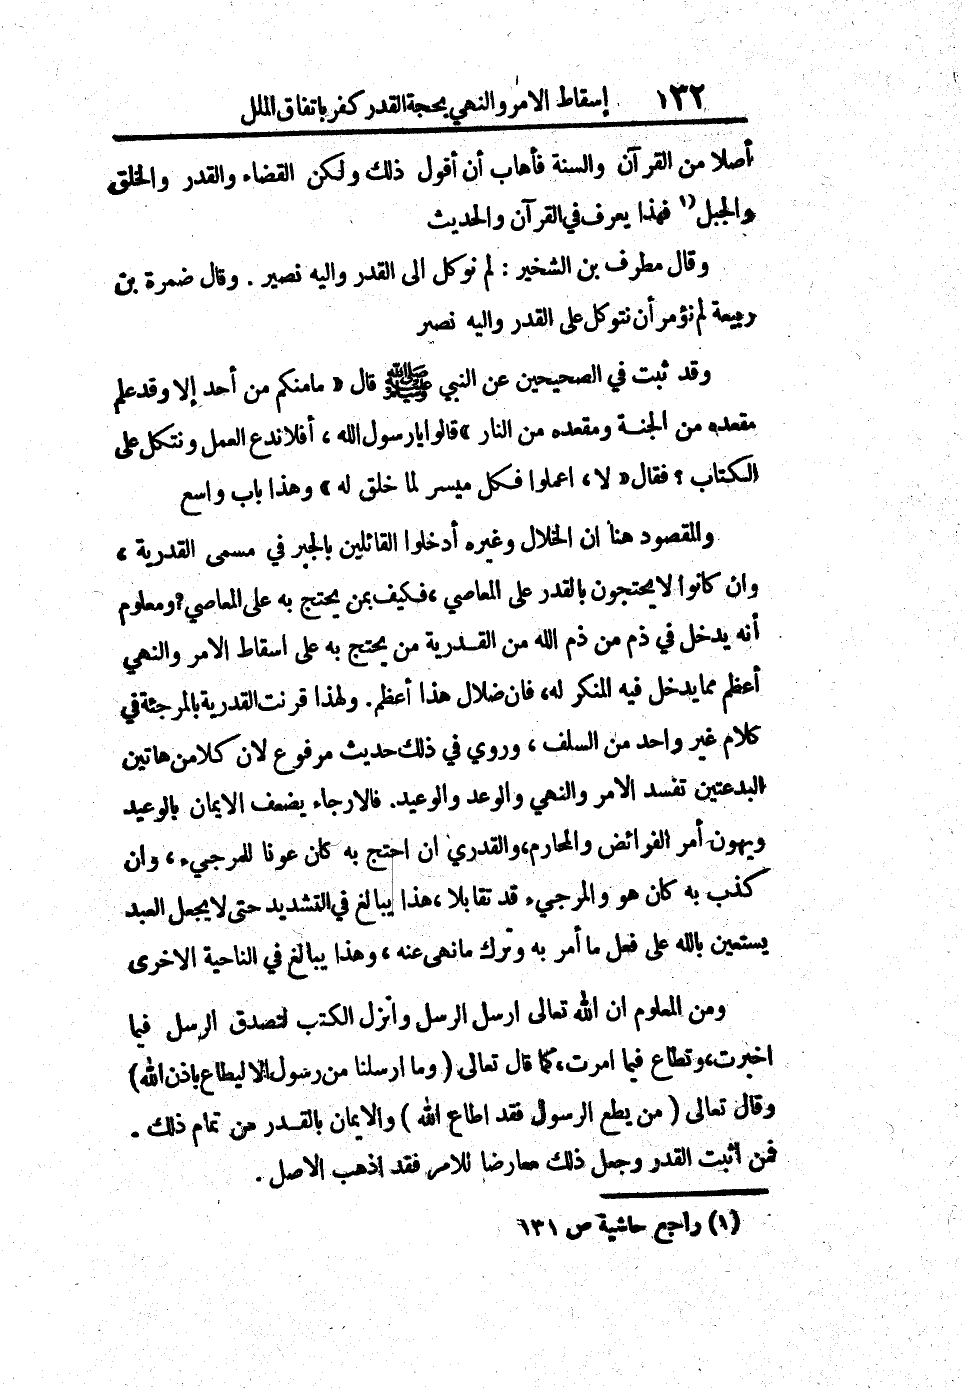 ١٣٢ إسقاط الامر والنهي بحجة القدر كفر باتفاق الملل
أصلا من القرآن والسنة فأهاب أن أقول ذلك ولكن القضاء والقدر والخلق
والجبل (١ فهذا يعرف في القرآن والحديث
وقال مطرف بن الشخير : لم نوكل الى القدر واليه نصير . وقال ضمرة بن
ربيعة لم نؤمر أن نتوكل على القدر واليه نصير
وقد ثبت في الصحيحين عن النبي ﷺ قال « مامنكم من أحد إلا وقد علم
مقعده من الجنة ومقعده من النار » قالوا يارسول الله ، أفلا ندع العمل ونتكل على
الكتاب ؟ فقال « لا ، اعملوا فكل ميسر لما خلق له » وهذا باب واسع
والمقصود هنا ان الخلال وغيره أدخلوا القائلين بالجبر في مسمى القدرية ،
وان كانوا لا يحتجون بالقدر على المعاصي ، فكيف بمن يحتج به على المعاصي ? ومعلوم
أنه يدخل في ذم من ذم الله من القدرية من يحتج به على اسقاط الامر والنهي
أعظم مما يدخل فيه المنكر له، فان ضلال هذا أعظم. ولهذا قرنت القدرية بالمرجئة في
كلام غير واحد من السلف ، وروي في ذلك حديث مرفوع لان كلا من هاتين
البدعتين تفسد الامر والنهي والوعد والوعيد. فالارجاء يضعف الايمان بالوعيد
ويهون أمر الفرائض والمحارم،والقدري ان احتج به كان عونا للمرجيء ، وان
كذب به كان هو والمرجيء قد تقابلا ،هذا يبالغ في التشديد حتى لا يجعل العبد
يستعين بالله على فعل ما أمر به وترك مانهى عنه ، وهذا يبالغ في الناحية الاخرى
ومن المعلوم ان الله تعالى ارسل الرسل وانزل الكتب لتصدق الرسل فيما
اخبرت،وتطاع فيما امرت ،كما قال تعالى ( وما ارسلنا من رسول الا ليطاع باذن الله )
وقال تعالى ( من يطع الرسول فقد اطاع الله ) والايمان بالقدر من تمام ذلك .
فمن اثبت القدر وجعل ذلك معارضا للامر فقد اذهب الاصل .
(١) راجع حاشية ص ١٣١